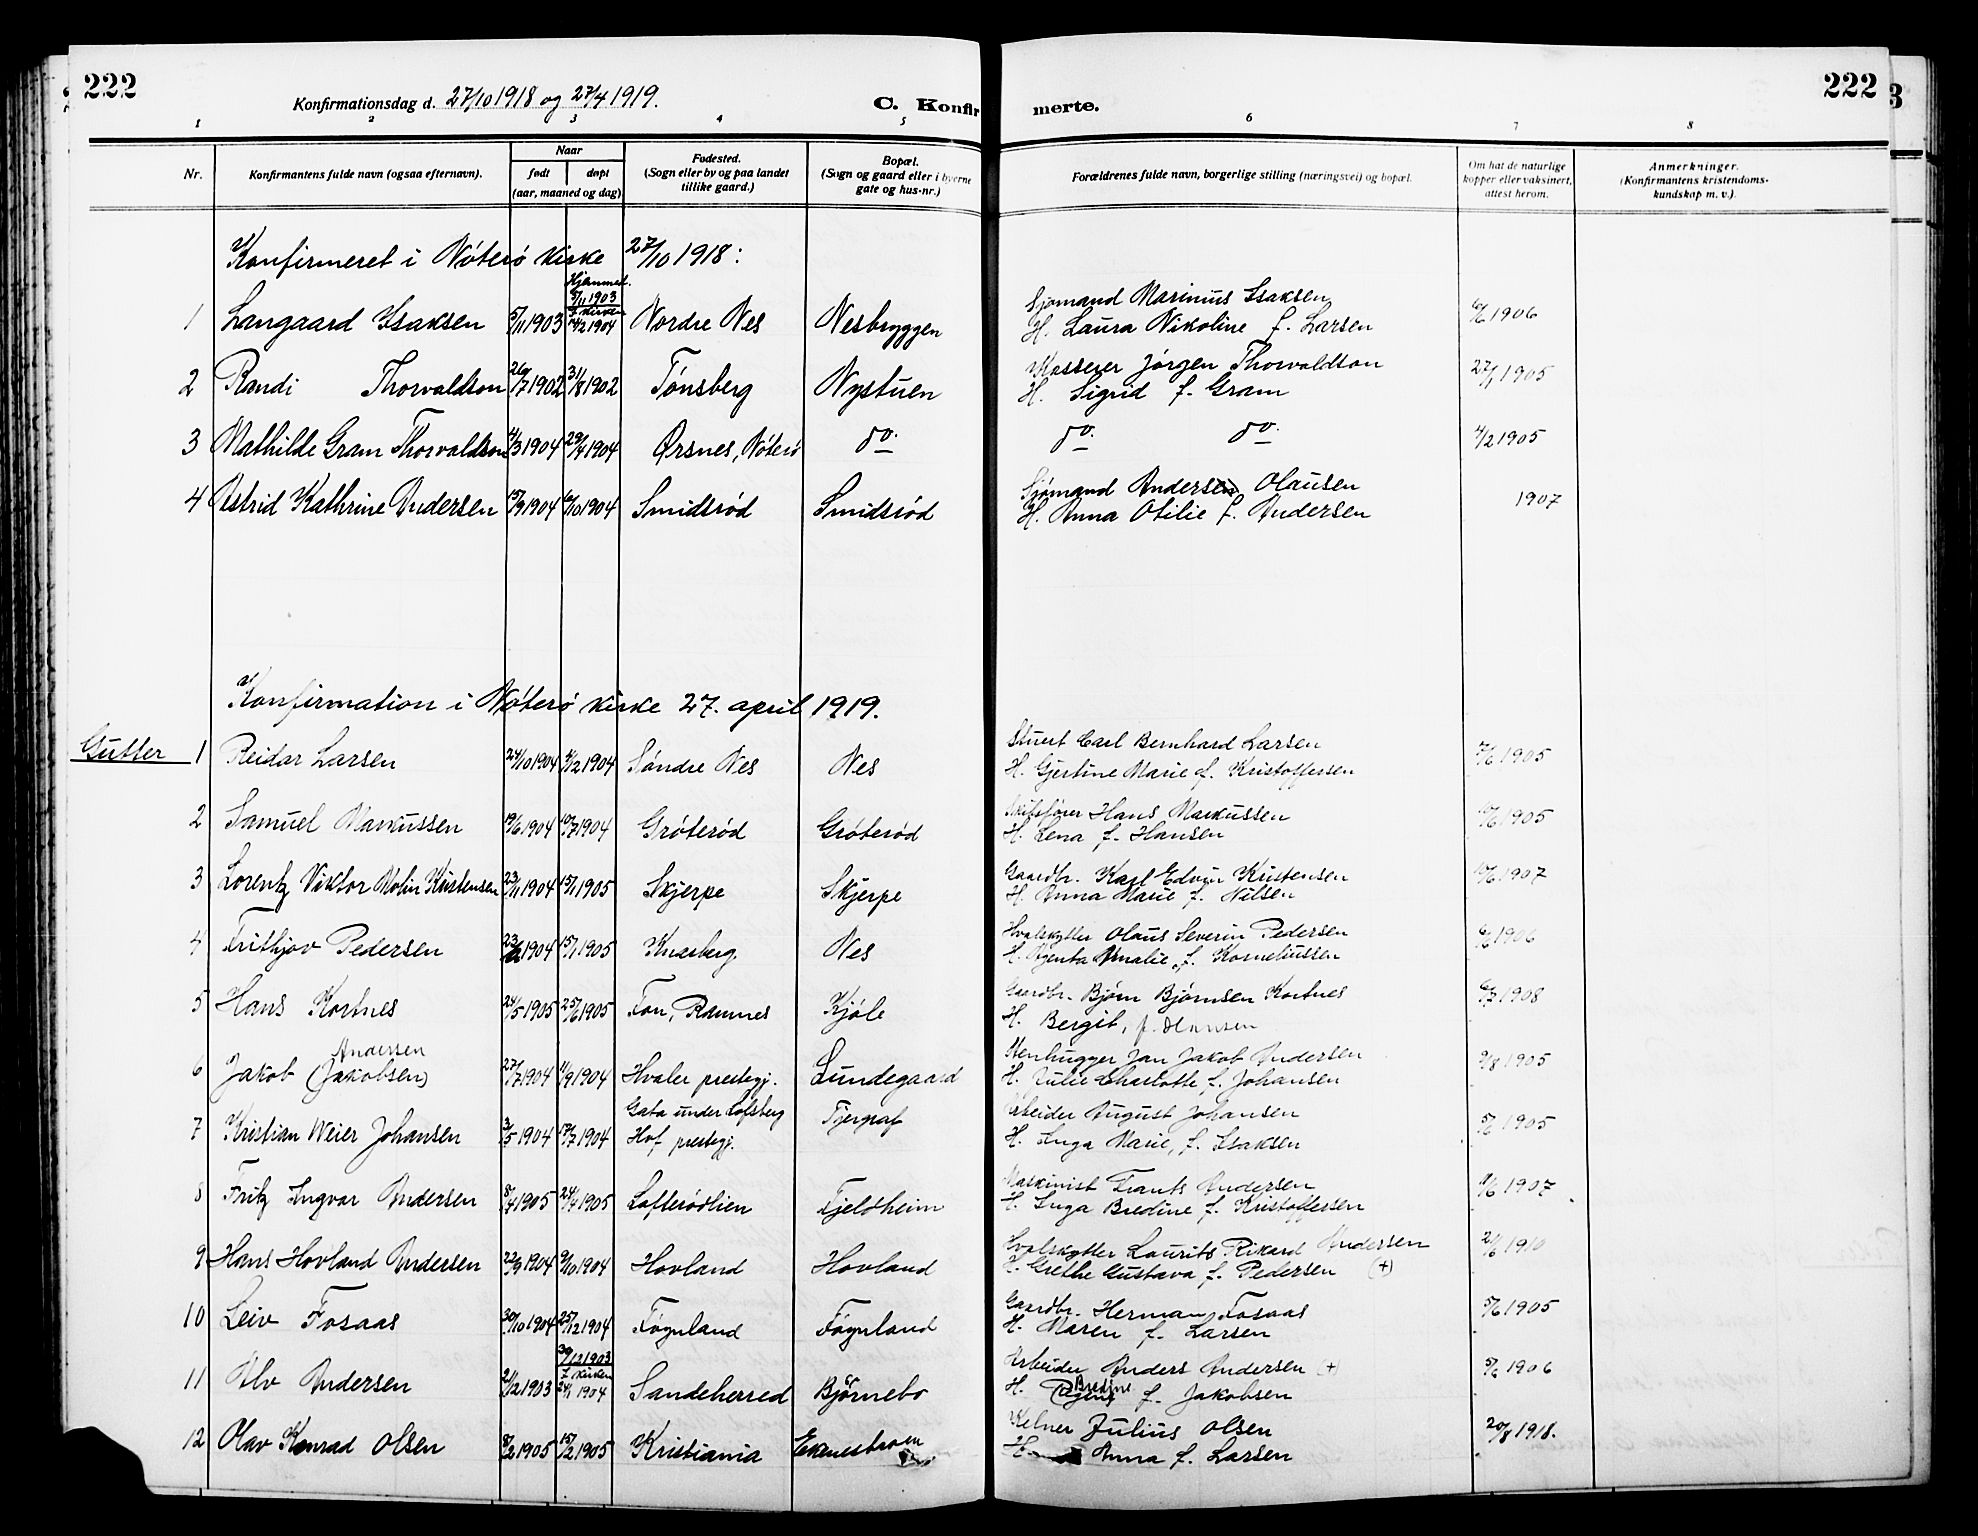 222
Konfirmationsdag d. 27/10 1918 og 27/4 1919.
C. Konfirmerte.
222
3
1 2 3 4 5 6 7 8
Nr.
Konfirmantens fulde navn (ogsaa efternavn).
Naar
født døpt
(aar, maaned og dag)
Fødested.
(Sogn eller by og paa landet
tillike gaard.)
Bopæl.
(Sogn og gaard eller i byerne
gate og hus-nr.)
Forældrenes fulde navn, borgerlige stilling (næringsvei) og bopæl.
Om hat de naturlige
kopper eller vaksinert,
attest herom.
Anmerkninger.
(Konfirmantens kristendoms-
kundskap m. v.)
Konfirmeret i Nøterø kirke 27/10 1918:
Hjemmed.
5/11 1903
I kirken
1 Langaard Isaksen 5/11 1903 14/2 1904 Nordre Nes Nesbryggen Sjømand Marinus Isaksen 1906
H. Laura Nikoline f. Larsen
2 Randi Thorvaldson 26/7 1902 31/8 1902 Tønsberg Nystuen Kasserer Jørgen Thorvaldson 27/1 1905
H. Sigrid f. Gram
3 Mathilde Gram Thorvaldson 4/3 1904 29/4 1904 Ørsnes, Nøterø do. do. do. 4/2 1905
4 Astrid Kathrine Andersen 15/9 1904 /10 1904 Smidsrød Smidsrød Sjømand Andersen Olausen 1907
H. Anna Otilie f. Andersen
Konfirmation i Nøterø kirke 27. april 1919.
Gutter 1 Reidar Larsen 24/10 1904 4/12 1904 Søndre Nes Nes Stuert Carl Bernhard Larsen 7/6 1905
H. Gjertine Marie f. Kristoffersen
2 Samuel Markussen 19/6 1904 10/7 1904 Grøterød Grøterød Skibsfører Hans Markussen 1905
H. Lena f. Hansen
3 Lorentz Viktor Molin Kristensen 23/11 1904 15/1 1905 Skjerpe Skjerpe Gaardbr. Karl Edvin Kristensen 1907
H. Anna Marie f. Nilsen
4 Frithjov Pedersen 1904 15/1 1905 Knarberg Nes Hvalskytter Olaus Severin Pedersen 1906
H. Agenta Amalie, f. Korneliussen
5 Hans Kortnes 24/5 1905 25/6 1905 Fon, Ramnes Kjøle Gaardbr. Bjørn Bjørnsen Kortnes 1908
H. Bergit, f. Hansen
Andersen
6 Jakob (Jakobsen) 27/7 1904 11/9 1904 Hvaler prestegj. Lundegaard Stenhugger Jan Jakob Andersen 9/8 1905
H. Julie Charlotte f. Johansen
Gata under Lofsberg
7 Kristian Weier Johansen 3/5 1904 17/7 1904 Hof prestegj. Tjergaf Arbeider August Johansen 5/6 1905
H. Inga Marie, f. Isaksen
8 Fritz Ingvar Andersen 8/4 1905 24/4 1905 Lofterødlien Fjeldheim Maskinist Frants Andersen 1907
H. Inga Bredine f. Kristoffersen
9 Hans Hovland Andersen 22/9 1904 9/10 1904 Hovland Hovland Hvalskytter Laurits Rikard Andersen 21/6 1910
H. Grethe Gustava f. Pedersen (+)
10 Leiv Fosaas 30/10 1904 25/12 1904 Føynland Føynland Gaardbr. Herman Fosaas 5/6 1905
H. Maren f. Larsen
30/12 1903
I kirken
11 Alv Andersen 21/12 1903 24/1 1904 Sandeherred Bjørnebo Arbeider Anders Andersen (+) 5/6 1906
Bredine
H. f. Jakobsen
12 Olav Konrad Olsen 8/2 1905 15/2 1905 Kristiania Ekenesbroen Kelner Julius Olsen 20/8 1918.
H. Anna f. Larsen